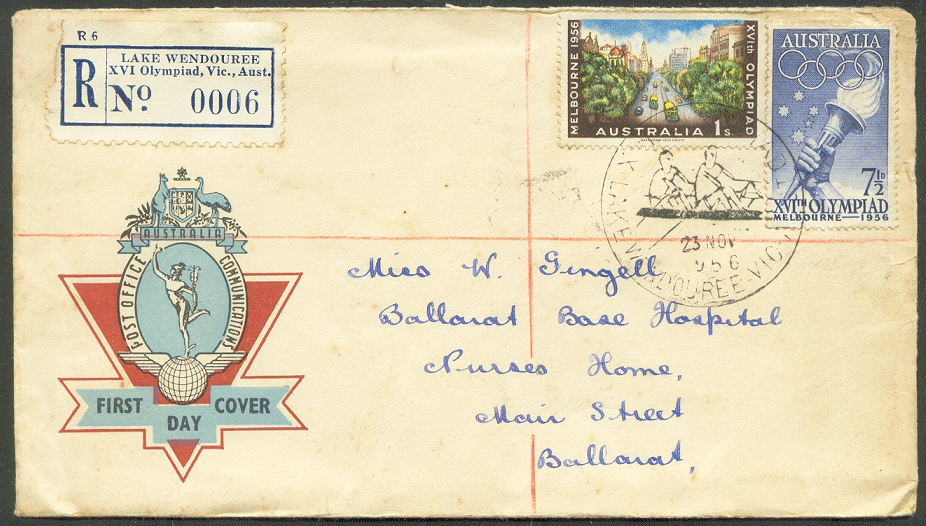 R 6
R
LAKE WENDOUREE
XVI Olympiad, Vic., Aust.
No 0006
MELBOURNE 1956
XVIth OLYMPIAD
AUSTRALIA 1s.
AUSTRALIA
7½D
XVITH OLYMPIAD
MELBOURNE—1956
LAKE WENDOUREE-VIC
23 NOV
1956
AUSTRALIA
POST OFFICE COMMUNICATIONS
FIRST DAY COVER
Miss W. Gingell
Ballarat Base Hospital
Nurses Home,
Mair Street
Ballarat,